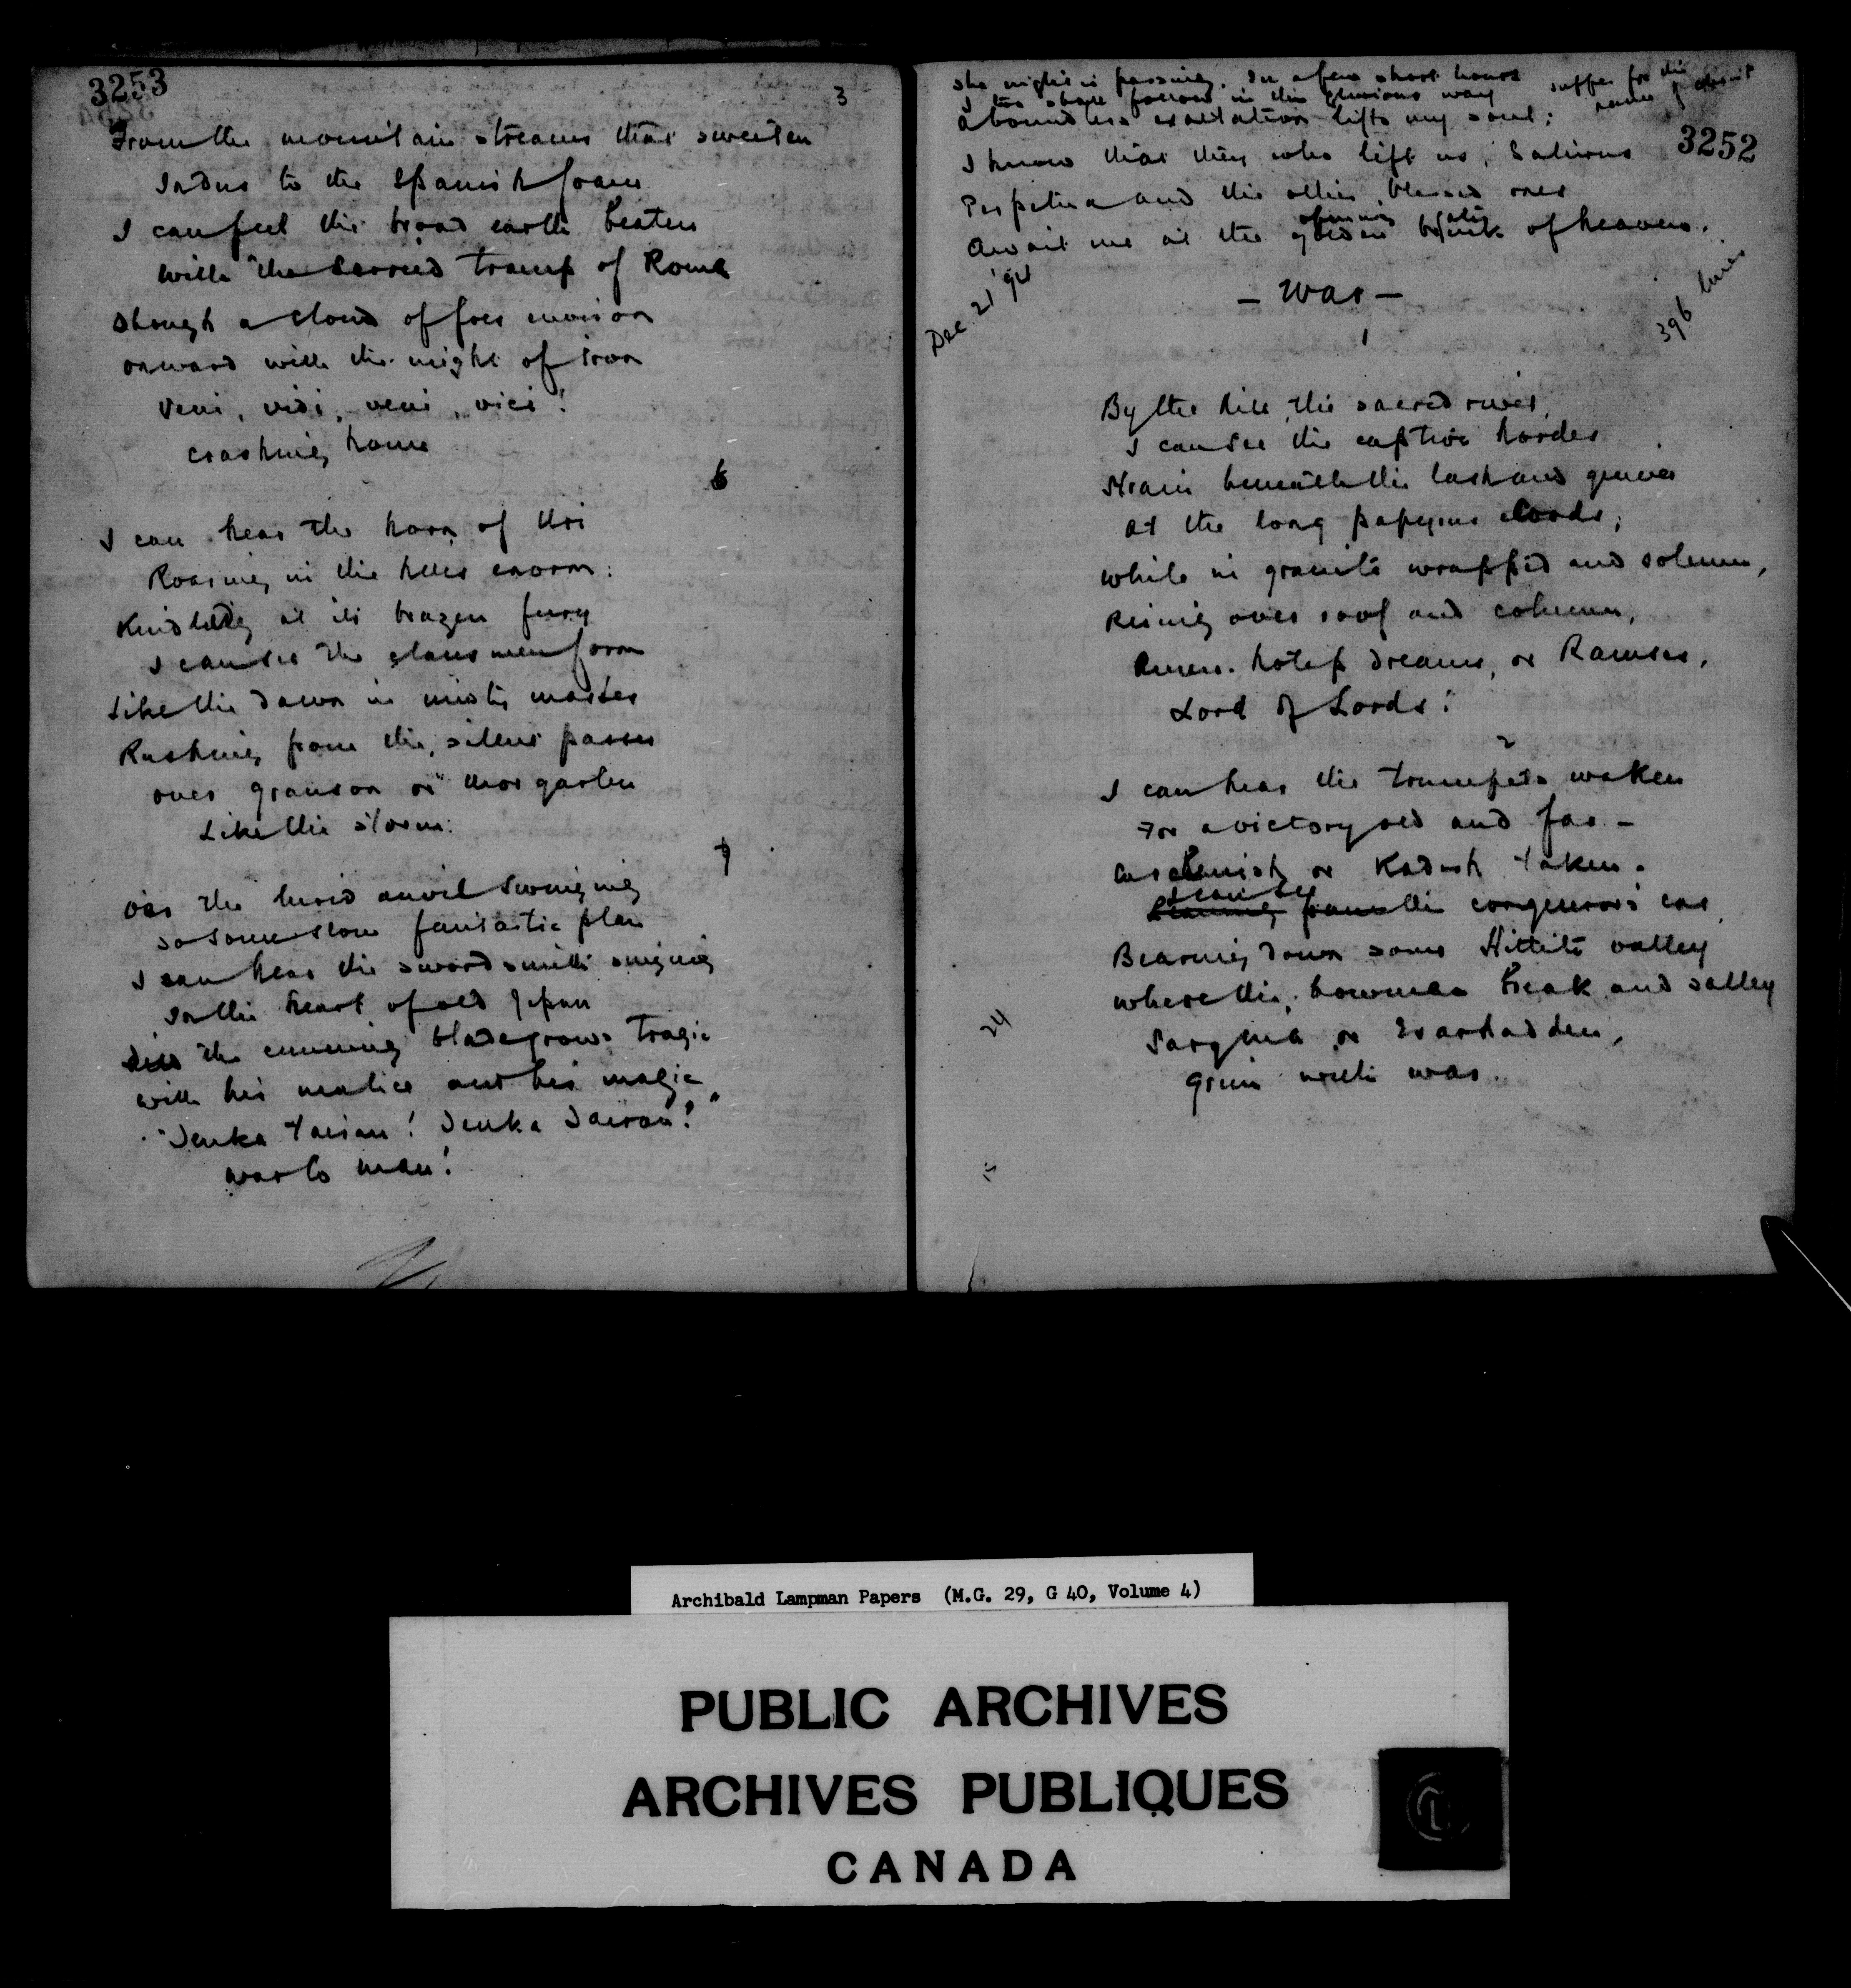 3253
3
From the mountain streams that sweeten
Indus to the Spanish foam
I can feel the broad earth beaten
With the serried tramp of Rome
Though a cloud of foes environ
onward with the might of iron
Veni, vidi, veni, vici!
crashing home
6
I can hear the horn of Uri
Roaring in the hills enorm:
Kindling at its brazen fury
I can see the clansmen form
Like the dawn in misty masses
Rushing from the silent passes
over Granson or Morgarten
Like the storm.
7
O'er the lurid anvil swinging
To some slow fantastic plan
I can hear the sword smith singing
In the heart of old Japan
Till the cunning blade grows tragic
with his malice and his magic
"Tenka tairan! Tenka Tairan!"
war to man!
3252
The night is passing. In a few short hours
I too shall follow in this glorious way suffer for the
name of Christ
A boundless exaltation lifts my soul;
I know that they who left us, Saturus
Perpetua and the other blessed ones
opening gates
Await me at the golden brink of heaven.
Dec 21 '94
– War –
396 lines
1
By the Nile, the sacred river,
I can see the captive hordes
Strain beneath the lash and quiver
At the long papyrus cords;
While in granite wrapped and solemn,
Rising over roof and column,
Amen-hotep dreams, or Ramses,
Lord of Lords!
2
I can hear the trumpets waken
For a victory old and far –
Carchemish or Kadesh taken –
the conqueror's car
Bearing down some Hittite valley
Where the bowmen break and salley
Sargina or Esarhadden,
Grim with war.
24
Archibald Lampman Papers (M.G. 29, G 40, Volume 4)
PUBLIC ARCHIVES
ARCHIVES PUBLIQUES
CANADA